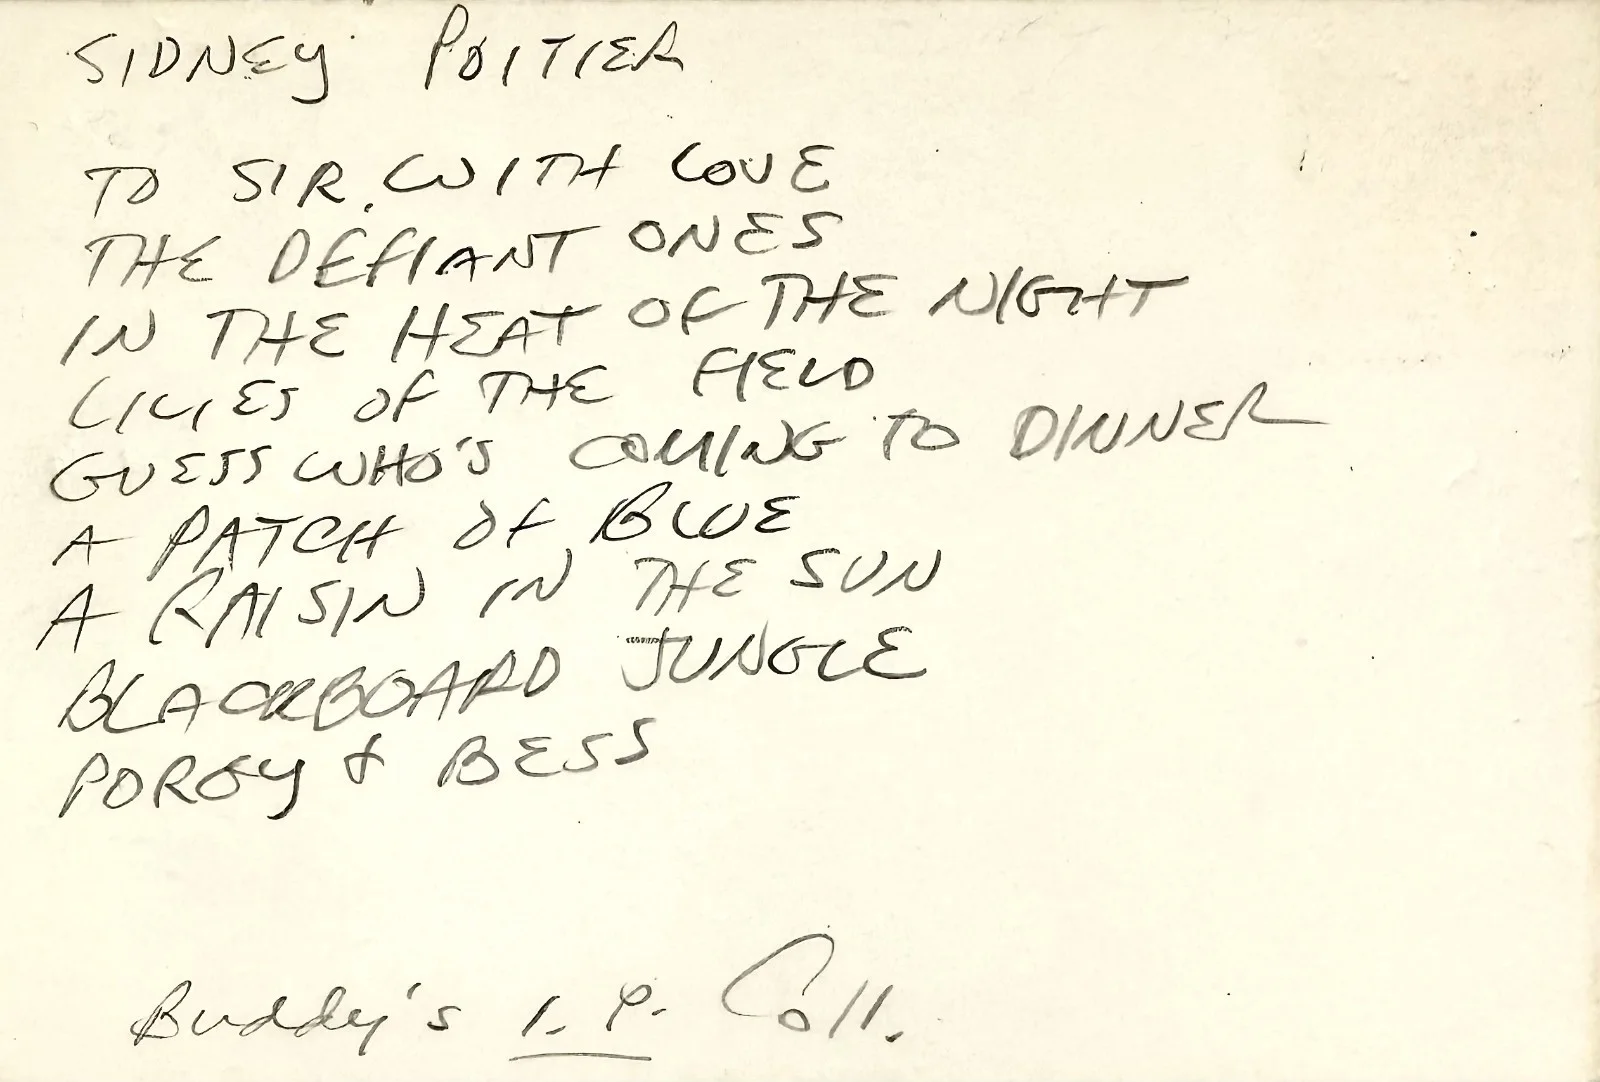 SIDNEY POITIER
TO SIR, WITH LOVE
THE DEFIANT ONES
IN THE HEAT OF THE NIGHT
LILIES OF THE FIELD
GUESS WHO'S COMING TO DINNER
A PATCH OF BLUE
A RAISIN IN THE SUN
BLACKBOARD JUNGLE
PORGY & BESS
Buddy's I.P. Coll.